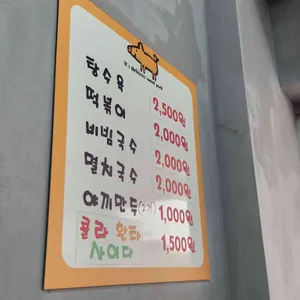 It's delicious sweet pork
탕수육 2,500원
떡볶이 2,000원
비빔국수 2,000원
멸치국수 2,000원
야끼만두 1,000원
콜라 환타
사이다 1,500원